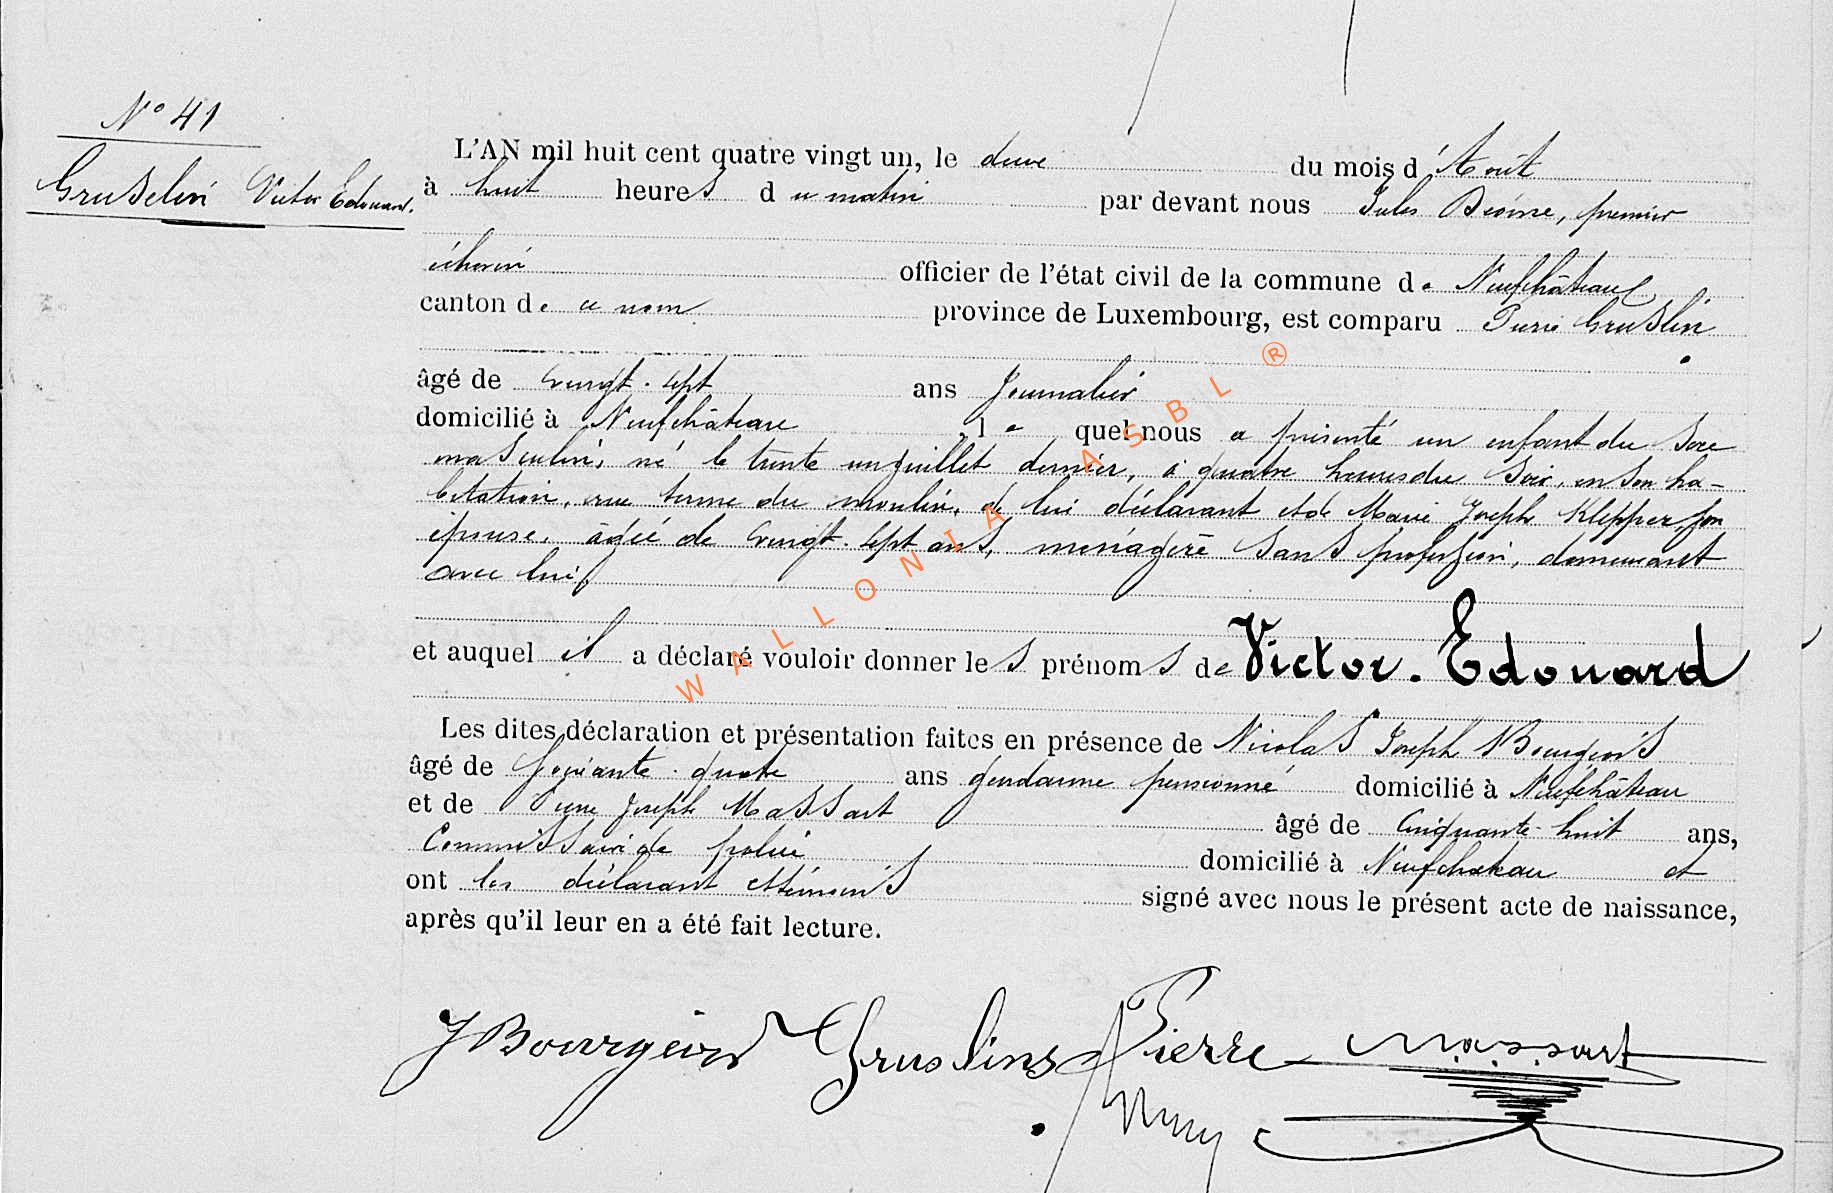 N° 41
Gruselin Victor Edouard.
L'AN mil huit cent quatre vingt un, le deux du mois d'Août
à huit heures du matin par devant nous Jules premier
échevin officier de l'état civil de la commune de Neufchâteau
canton de ce nom province de Luxembourg, est comparu Pierre Gruslin
âgé de vingt-sept ans Journalier
domicilié à Neufchâteau, lequel nous a présenté un enfant du sexe
masculin, né le trente un juillet dernier, à quatre heures du soir, en son ha-
bitation, rue terme du moulin, de lui déclarant et de Marie Joseph Klepper, son
épouse, âgée de vingt-sept ans, ménagère sans profession, demeurant
avec lui
et auquel il a déclaré vouloir donner les prénoms de Victor-Edouard
Les dites déclaration et présentation faites en présence de Nicolas Joseph Bourgeois
âgé de soixante-quatre ans gendarme pensionné domicilié à Neufchâteau
et de Pierre Joseph Massart âgé de Cinquante-huit ans,
Commissaire de police domicilié à Neufchateau et
ont les déclarant et témoins signé avec nous le présent acte de naissance,
après qu'il leur en a été fait lecture.
J Bourgeois Gruslins Pierre Massart
WALLONIA ASBL ®